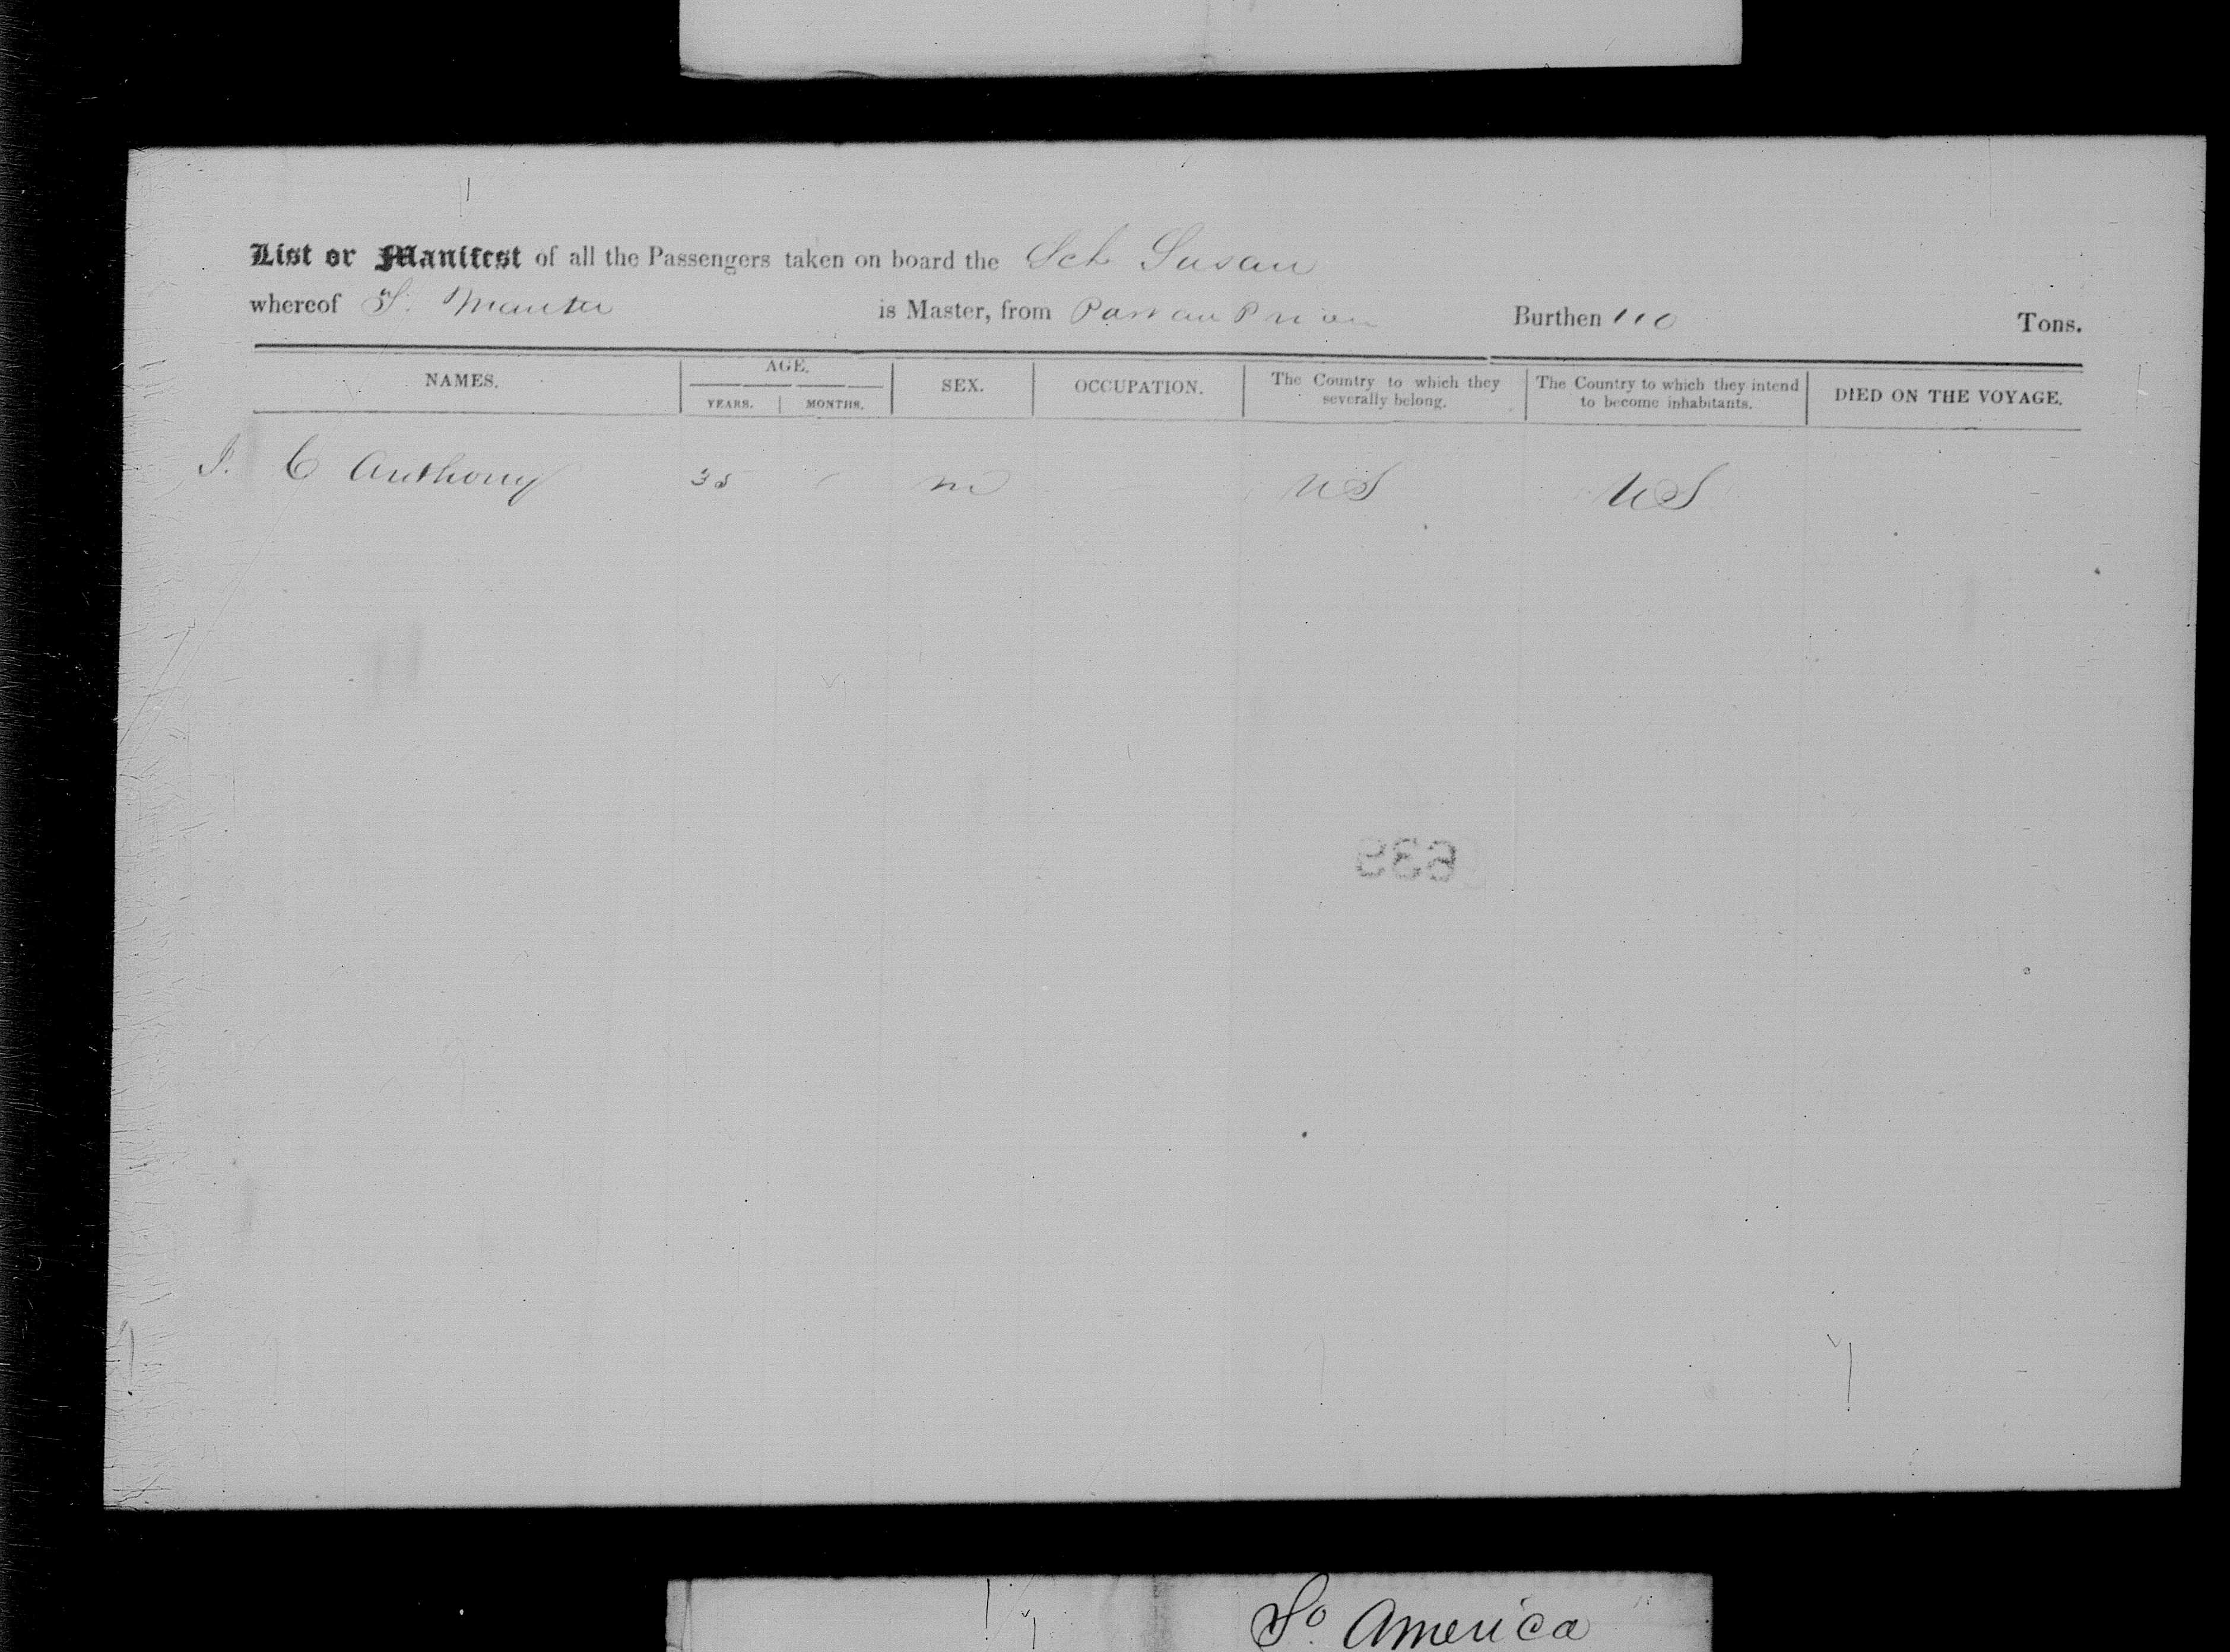 List or Manifest of all the Passengers taken on board the Sch Susan
whereof S. Manter is Master, from Port au Prince Burthen 110 Tons.
NAMES. AGE. SEX. OCCUPATION. The Country to which they severally belong. The Country to which they intend to become inhabitants. DIED ON THE VOYAGE.
YEARS. MONTHS.
J. C Anthony 35 m US US
So. America